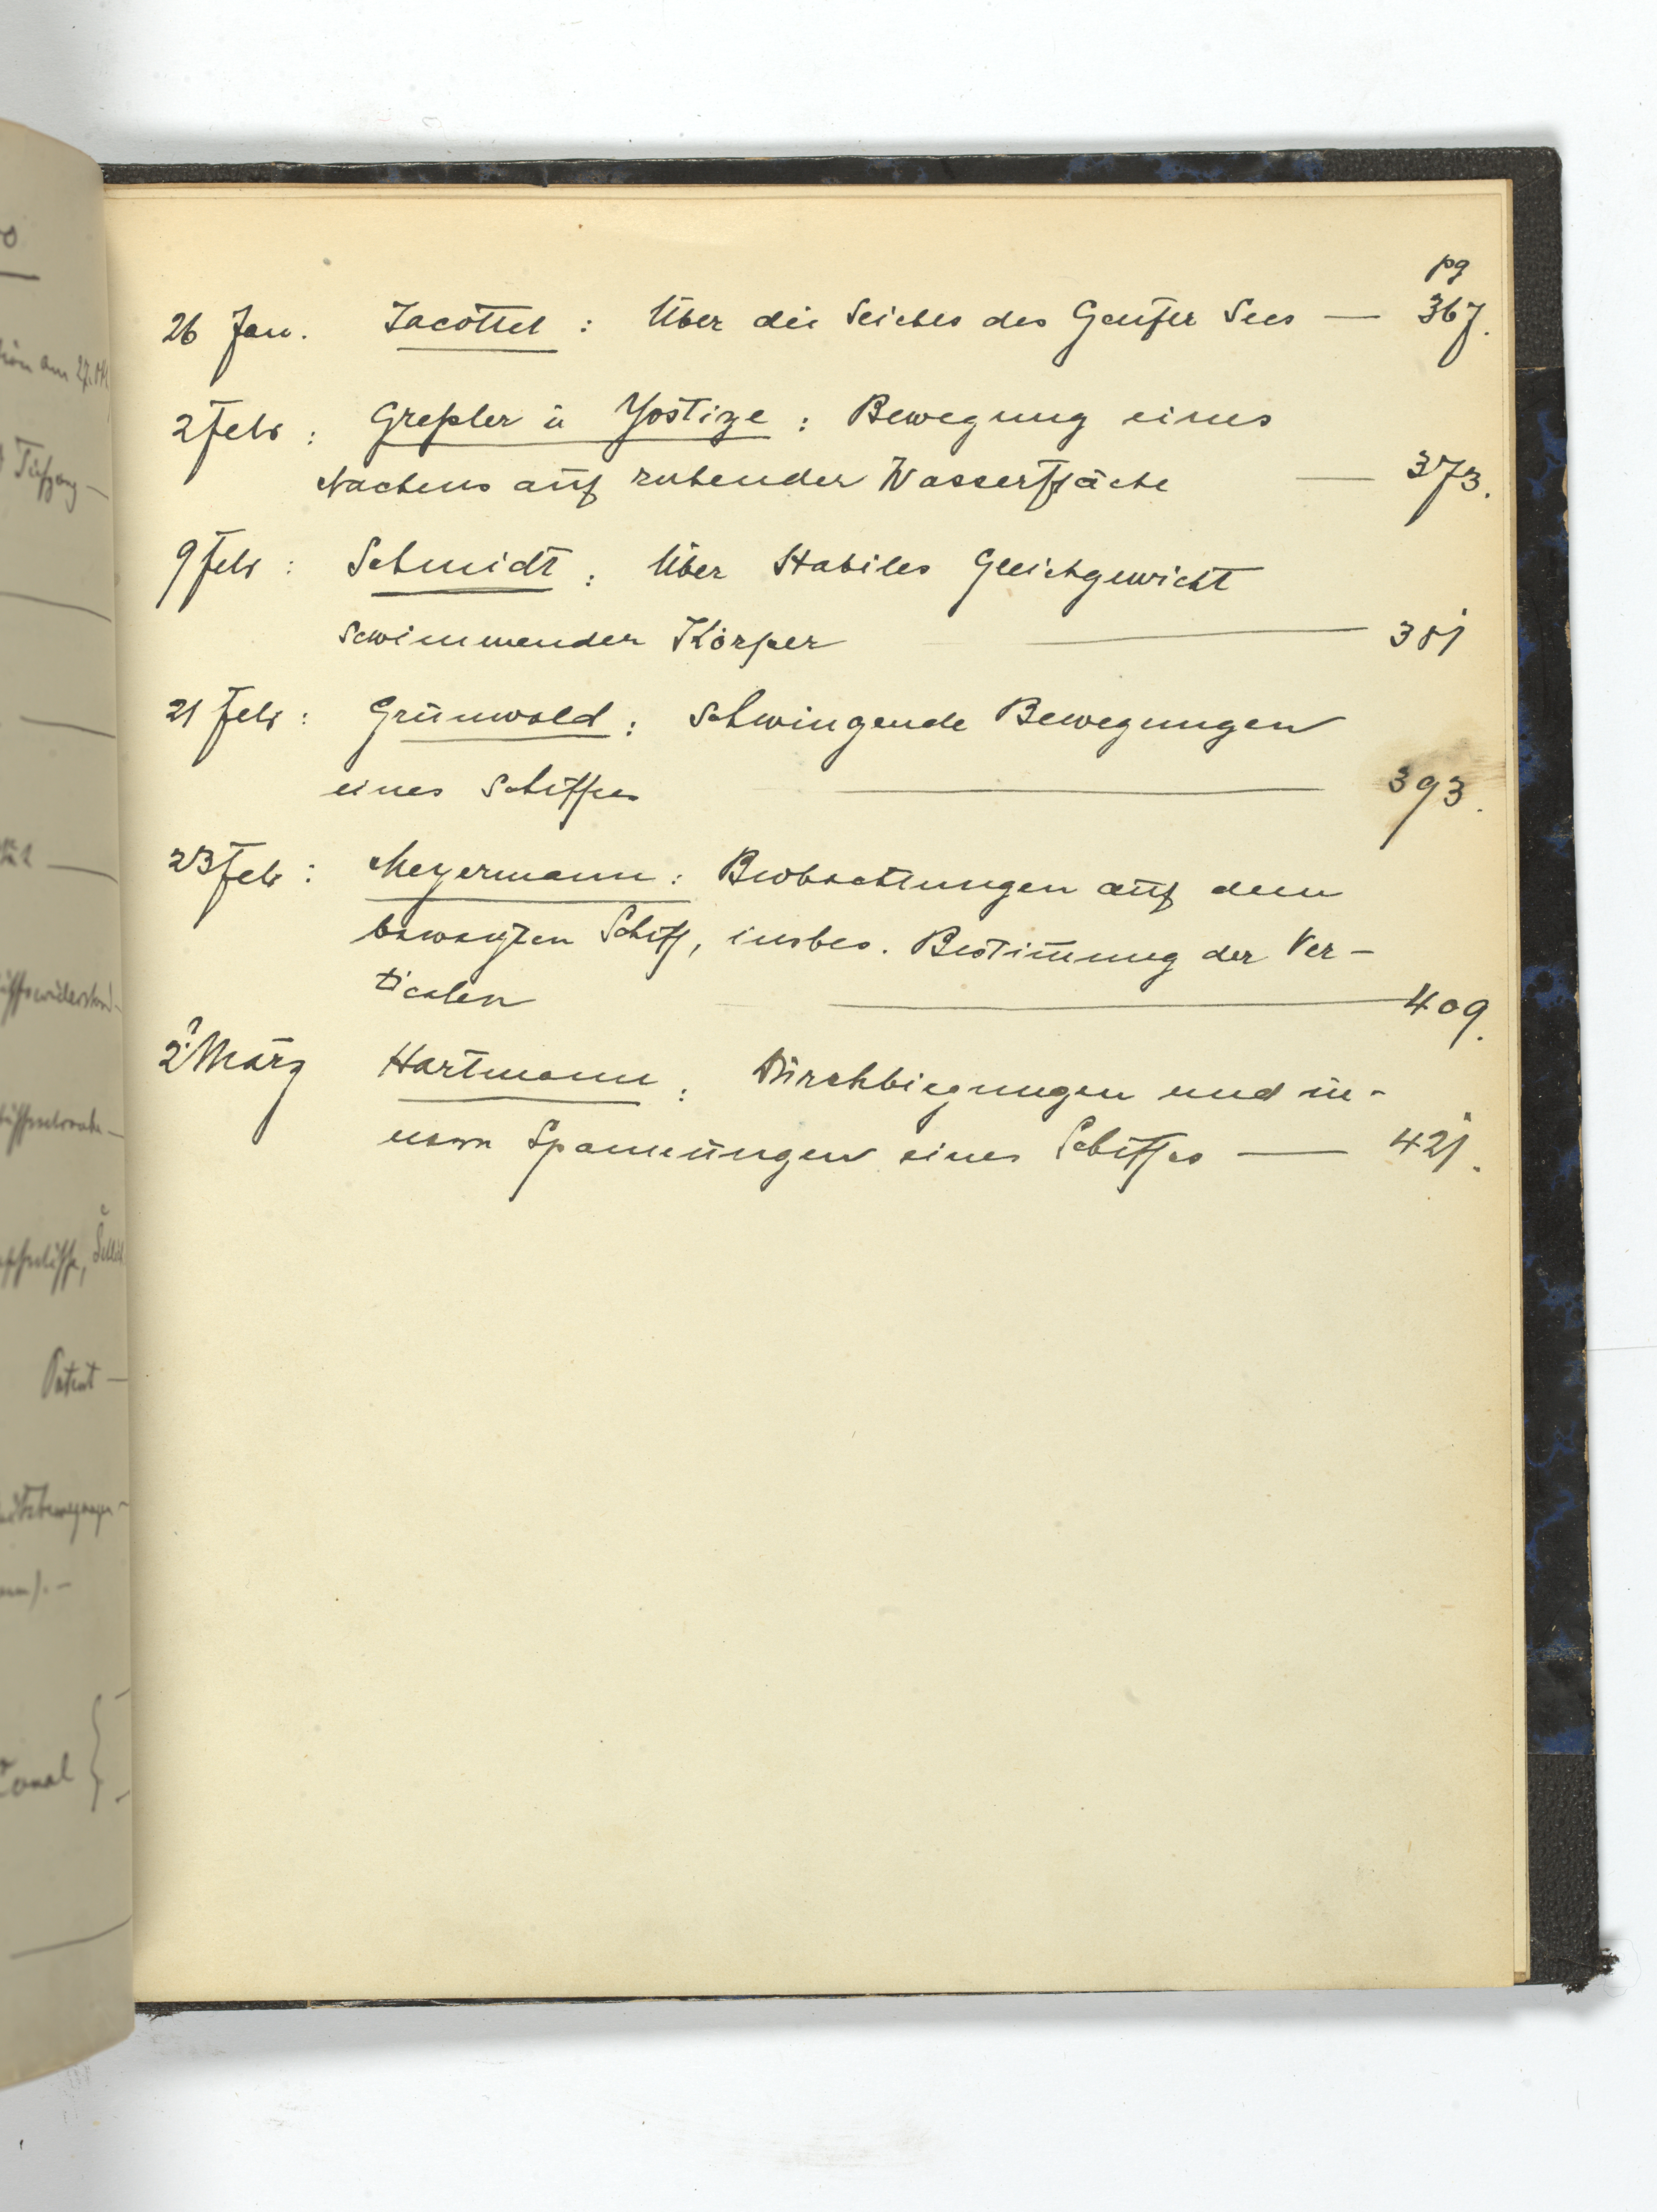 pg
26 Jan. Jacottet : Über die Seiches des Genfer Sees — 367.
2 Febr : Greßler u Yostize : Bewegung eines
Nachens auf ruhender Wasserfläche — 373.
9 Febr : Schmidt : Über Stabiles Gleichgewicht
schwimmender Körper — 381
21 Febr : Grünwald : Schwingende Bewegungen
eines Schiffes — 393.
23 Febr : Meyermann : Beobachtungen auf dem
bewegten Schiff, insbes. Bestimmung der Ver-
ticalen — 409.
2 März Hartmann : Durchbiegungen und in-
nern Spannungen eines Schiffes — 421.
Patent —
Canal